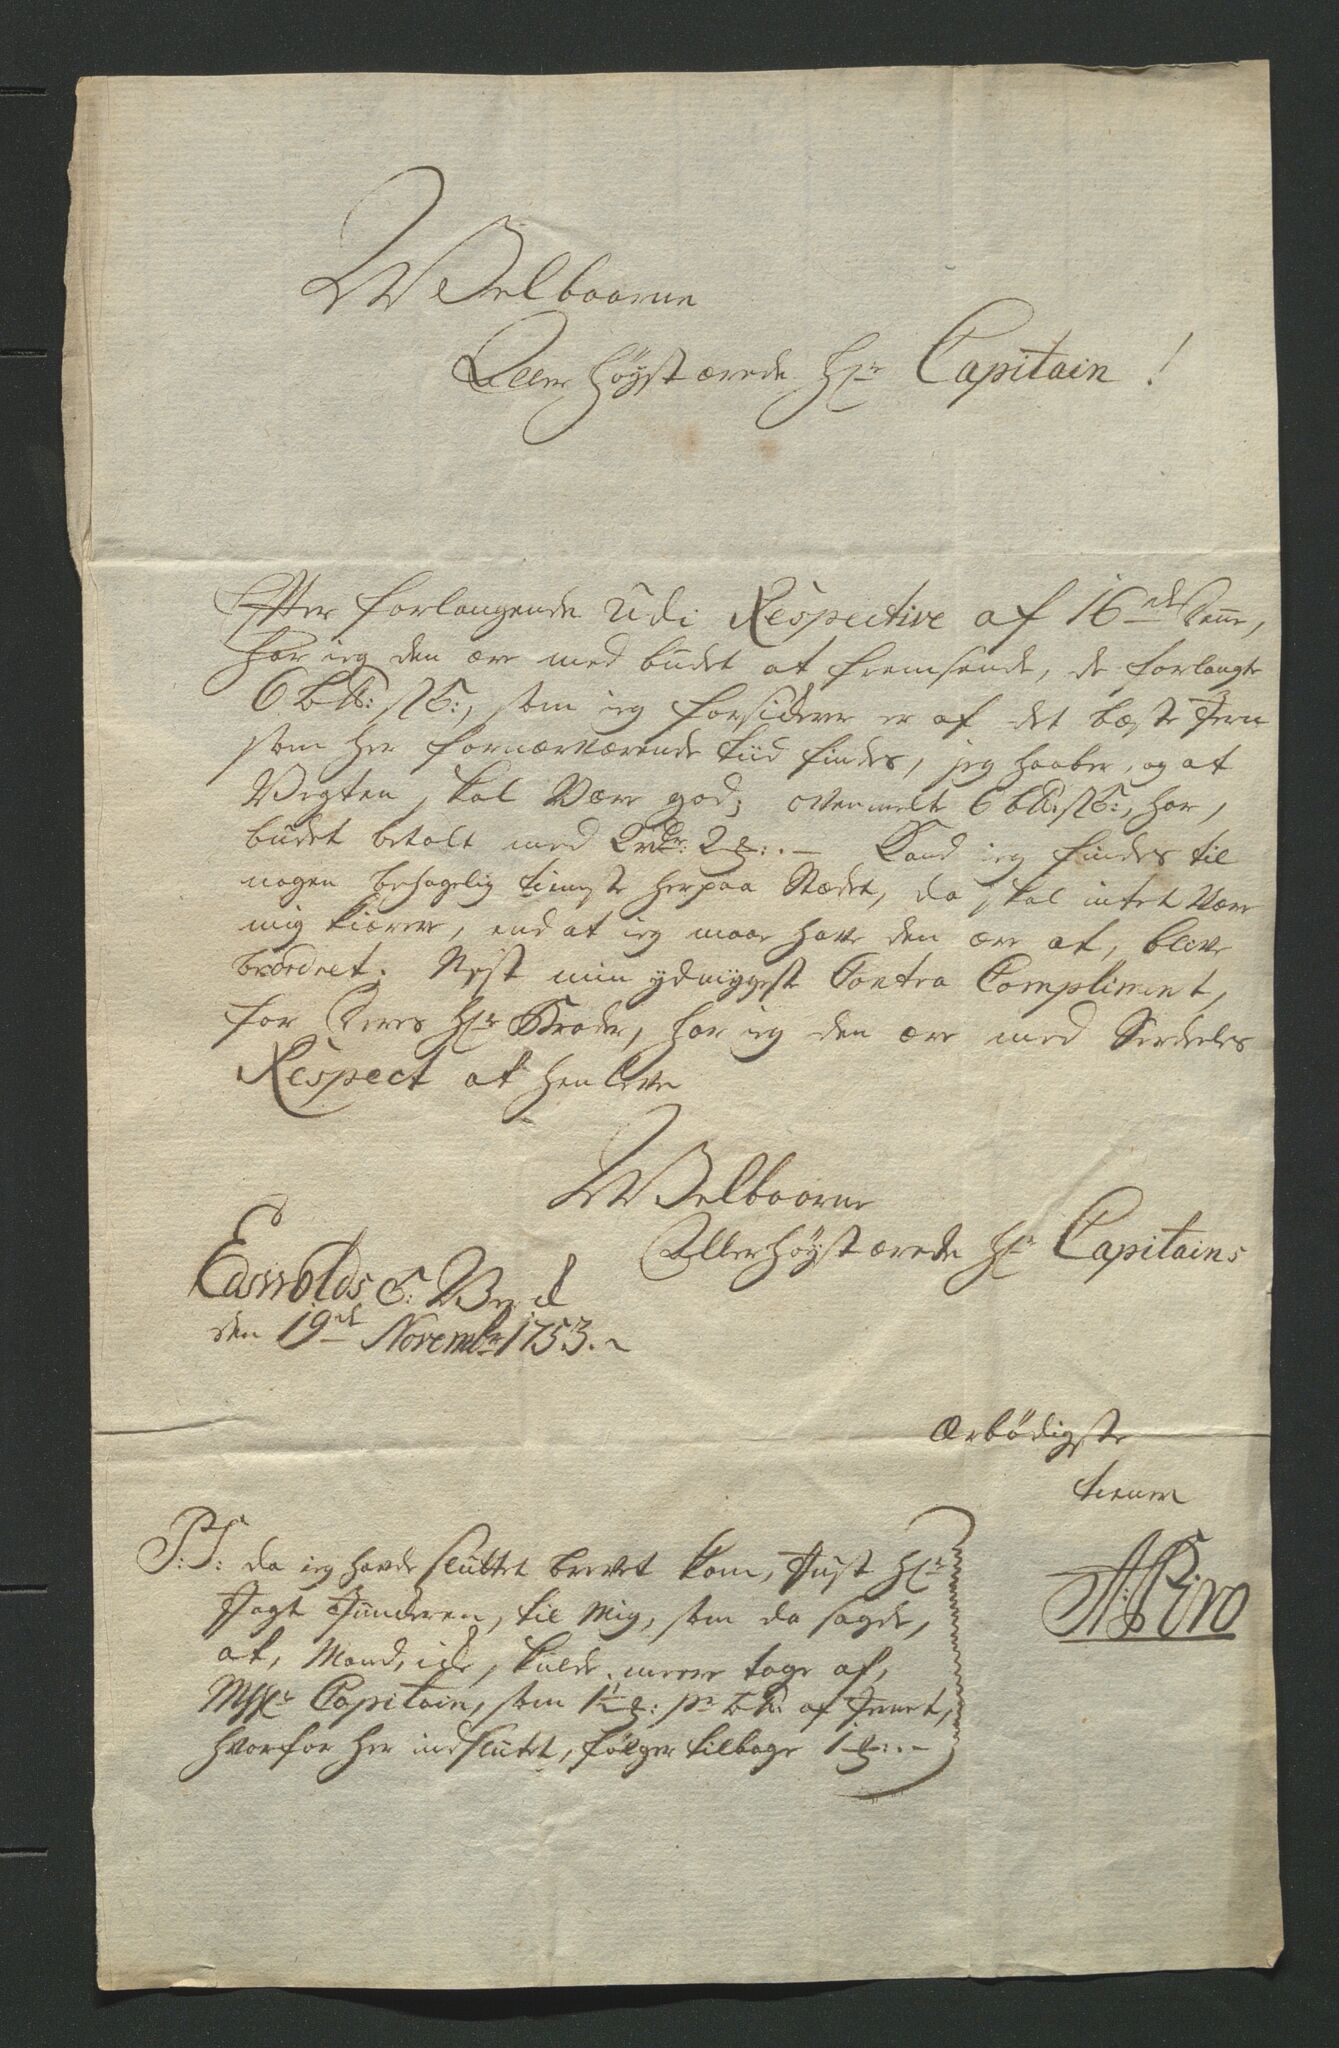 Welbaarne
Aller höyst ærede Hr Capitain!
Efter forlangende udi Respective af 16de Denne,
har ieg den ære med budet at fremsende, de forlangte
6 btt: st:, som ieg forsickrer er af det bæste Jern
som her fornærværende tiid findes, jeg haaber, og at
Vegten, skal være god; ovenmelte 6 btt: st:, har,
budet betalt med 2 rdr: 2
Kand ieg findes til
nogen behagelig tienste herpaa Stædet, da skal intet være
mig kiærere, end at ieg maae have den ære at, blive
beordret. Nest min ydmygest Contra Compliment,
for Deres Hr Broder, har ieg den ære med Serdeles
Respect at henleve
Welbaarne
Allerhöyst ærede Hr Capitains
Edsvolds
den 19de Novembr 1753.
ærbödigste
tiener
A: Piro
P:S: da ieg havde sluttet brevet kom, Just Hr
Fogt Tünderen, til mig, som da sagde,
at, Mand, icke, skulde meere tage af,
Capitain, som 1 af Jernet,
hvorfor her indslutet, fölger tilbage 1